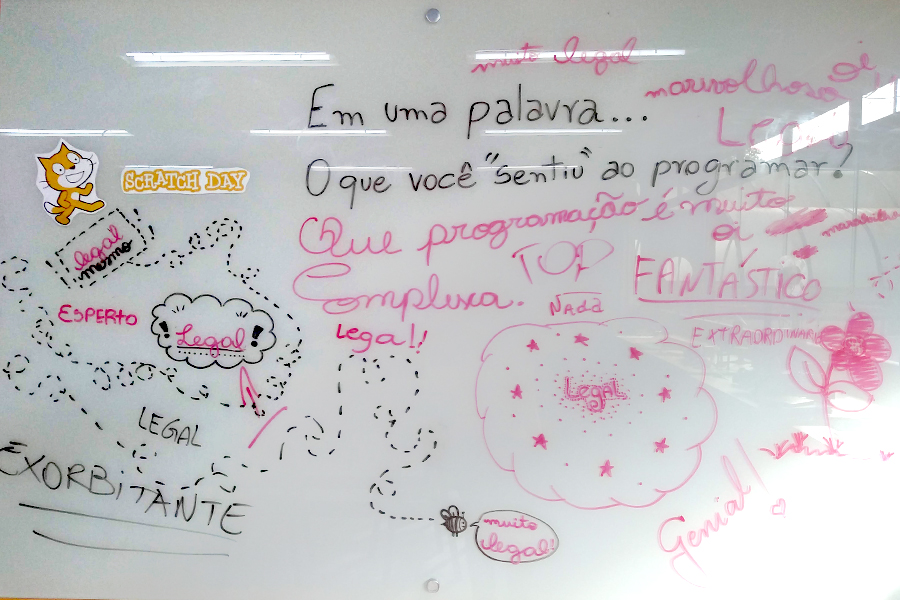 muito legal
oi
marivolhoso
Em uma palavra...
O que você "sentiu" ao programar?
SCRATCH DAY
Que programação é muito
oi
TOP
Complexa.
FANTÁSTICO
legal
mesmo
ESPERTO
Legal!
Legal!!
NADA
EXTRAORDINÁRIO
LEGAL
LEGAL
EXORBITANTE
muito
legal!
Genial!